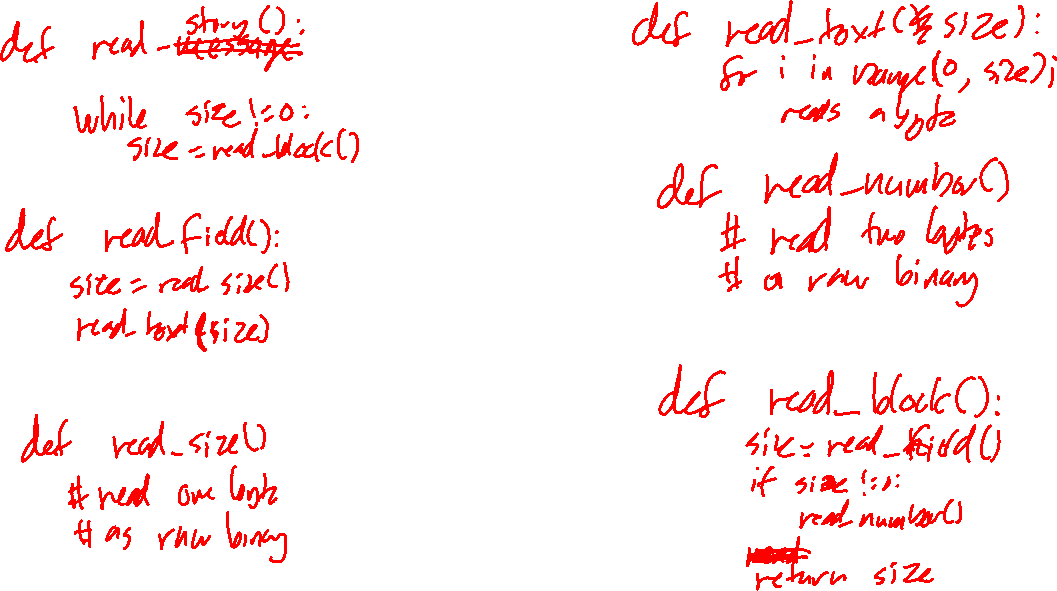 def read_story():
while size != 0:
size = read_block()
def read_field():
size = read_size()
read_text(size)
def read_size()
# read one byte
# as raw binary
def read_text(size):
for i in range(0, size):
reads a byte
def read_number()
# read two bytes
# a raw binary
def read_block():
size = read_field()
if size != 0:
read_number()
return size